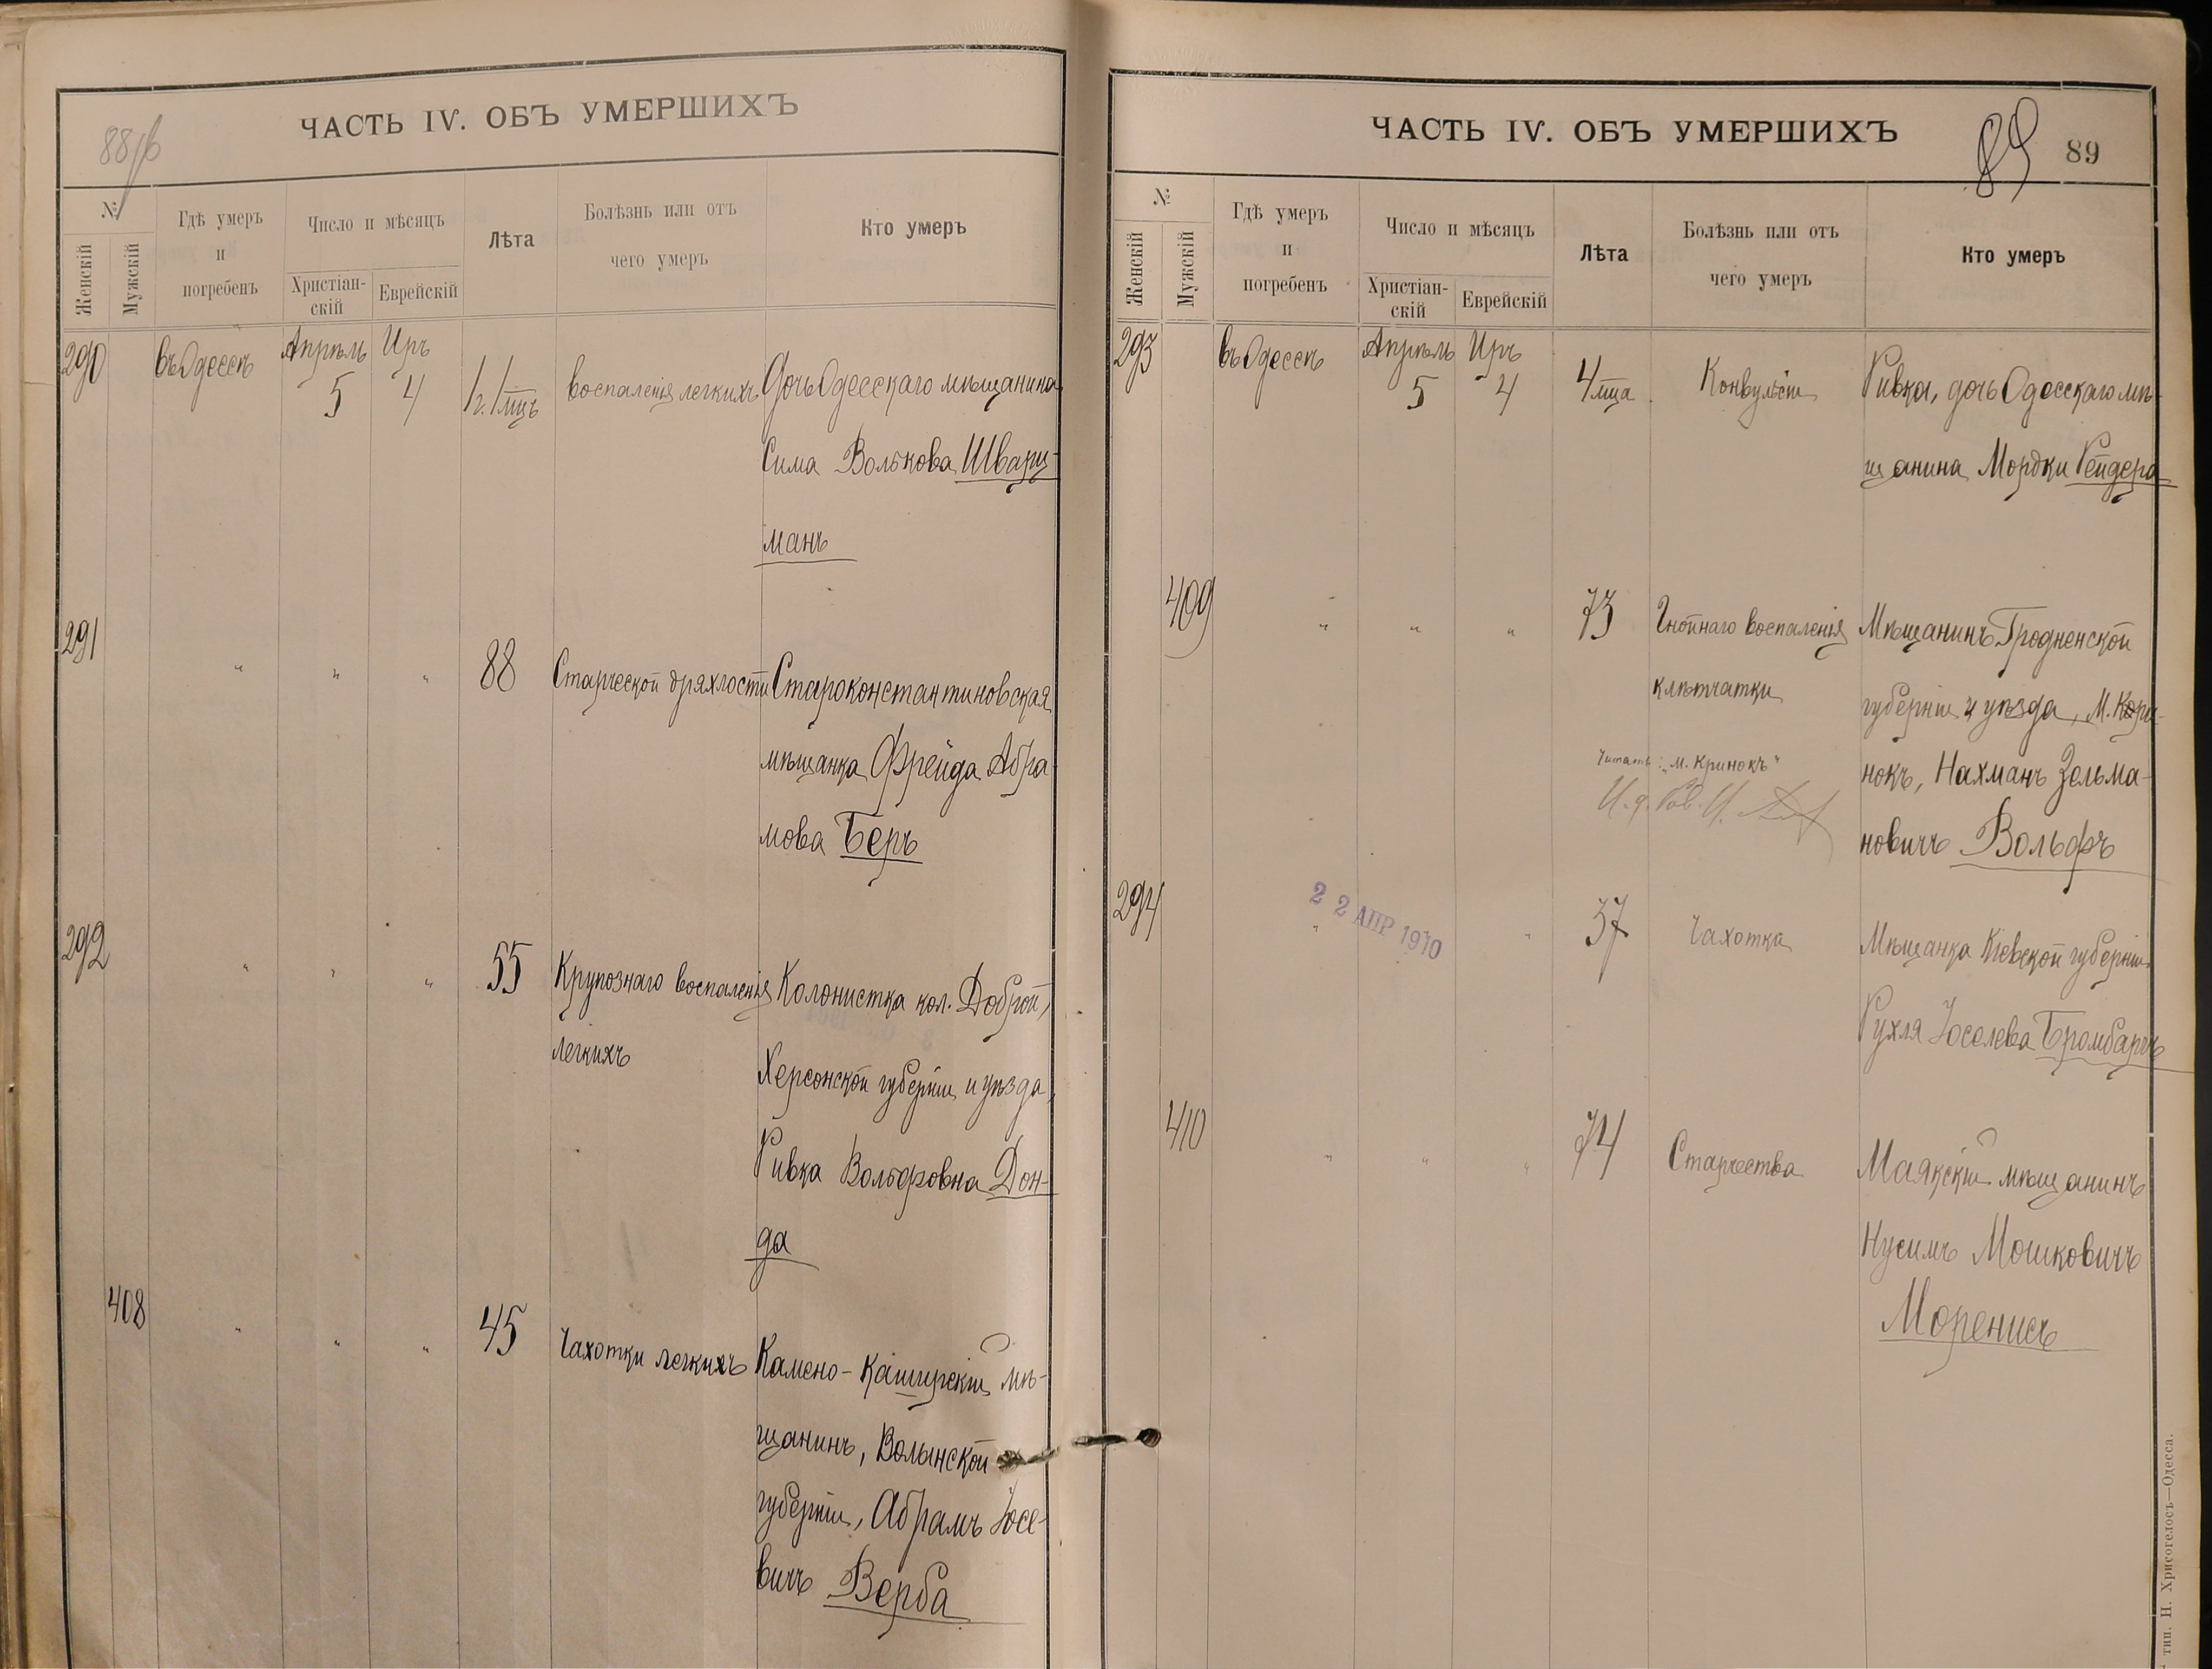 88/б
ЧАСТЬ IV. ОБЪ УМЕРШИХЪ
№
Женскій
Мужскій
Гдѣ умеръ
и
погребенъ
Число и мѣсяцъ
Христіан-
скій
Еврейскій
Лѣта
Болѣзнь или отъ
чего умеръ
Кто умеръ
290 въ Одессѣ Апрѣль Иръ
5 4 1 г. 1 мцъ воспаленія легкихъ Дочь Одесскаго мѣщанина
Сима Волькова Шварц-
манъ
291 " " " 88 Старческой дряхлости Староконстантиновская
мѣщанка Фрейда Абра-
мова Беръ
292 " " " 55 Крупознаго воспаленія Колонистка кол. Доброй,
легкихъ Херсонской губерніи и уѣзда,
Ривка Вольфовна Дон-
да
408 " " " 45 Чахотки легкихъ Камено-Каширскій мѣ-
щанинъ, Волынской
губерніи, Абрамъ Іосе-
вичъ Верба
ЧАСТЬ IV. ОБЪ УМЕРШИХЪ
89
89
№
Женскій
Мужскій
Гдѣ умеръ
и
погребенъ
Число и мѣсяцъ
Христіан-
скій
Еврейскій
Лѣта
Болѣзнь или отъ
чего умеръ
Кто умеръ
293 въ Одессѣ Апрѣль Иръ
5 4 4 мца Конвульсіи Ривка, дочь Одесскаго мѣ-
щанина Мордки Рейдера
409 " " " 73 Гнойнаго воспаленія Мѣщанинъ Гродненской
клѣтчатки губерніи и уѣзда, М. Кори-
нокъ, Нахманъ Зельма-
новичъ Вольфъ
Читать: "м. Кринокъ"
И. д. Рав.
22 АПР 1910
294 " " 37 Чахотки Мѣщанка Кіевской губерніи
Рухля Іоселева Бромбергъ
410 " " " 74 Старчества Маякскій мѣщанинъ
Нусимъ Мошковичъ
Моренисъ
тип. Н. Хрисогелосъ—Одесса.